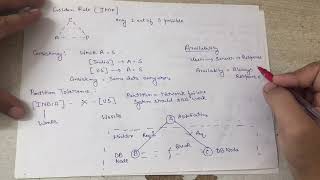 Golden Rule (IMP)
C A P
any 2 out of 3 possible
Consistency: Write A = 5
[India] → A = 5
[US] → A = 5
Consistency = Same data everywhere
Availability
User → Server → Response
Availability = Always
Response
Partition Tolerance:
Partition = Network failure
[INDIA] - X - [US]
System should still work
Works
Works
A Application
DB Node
B
C
DB
Node